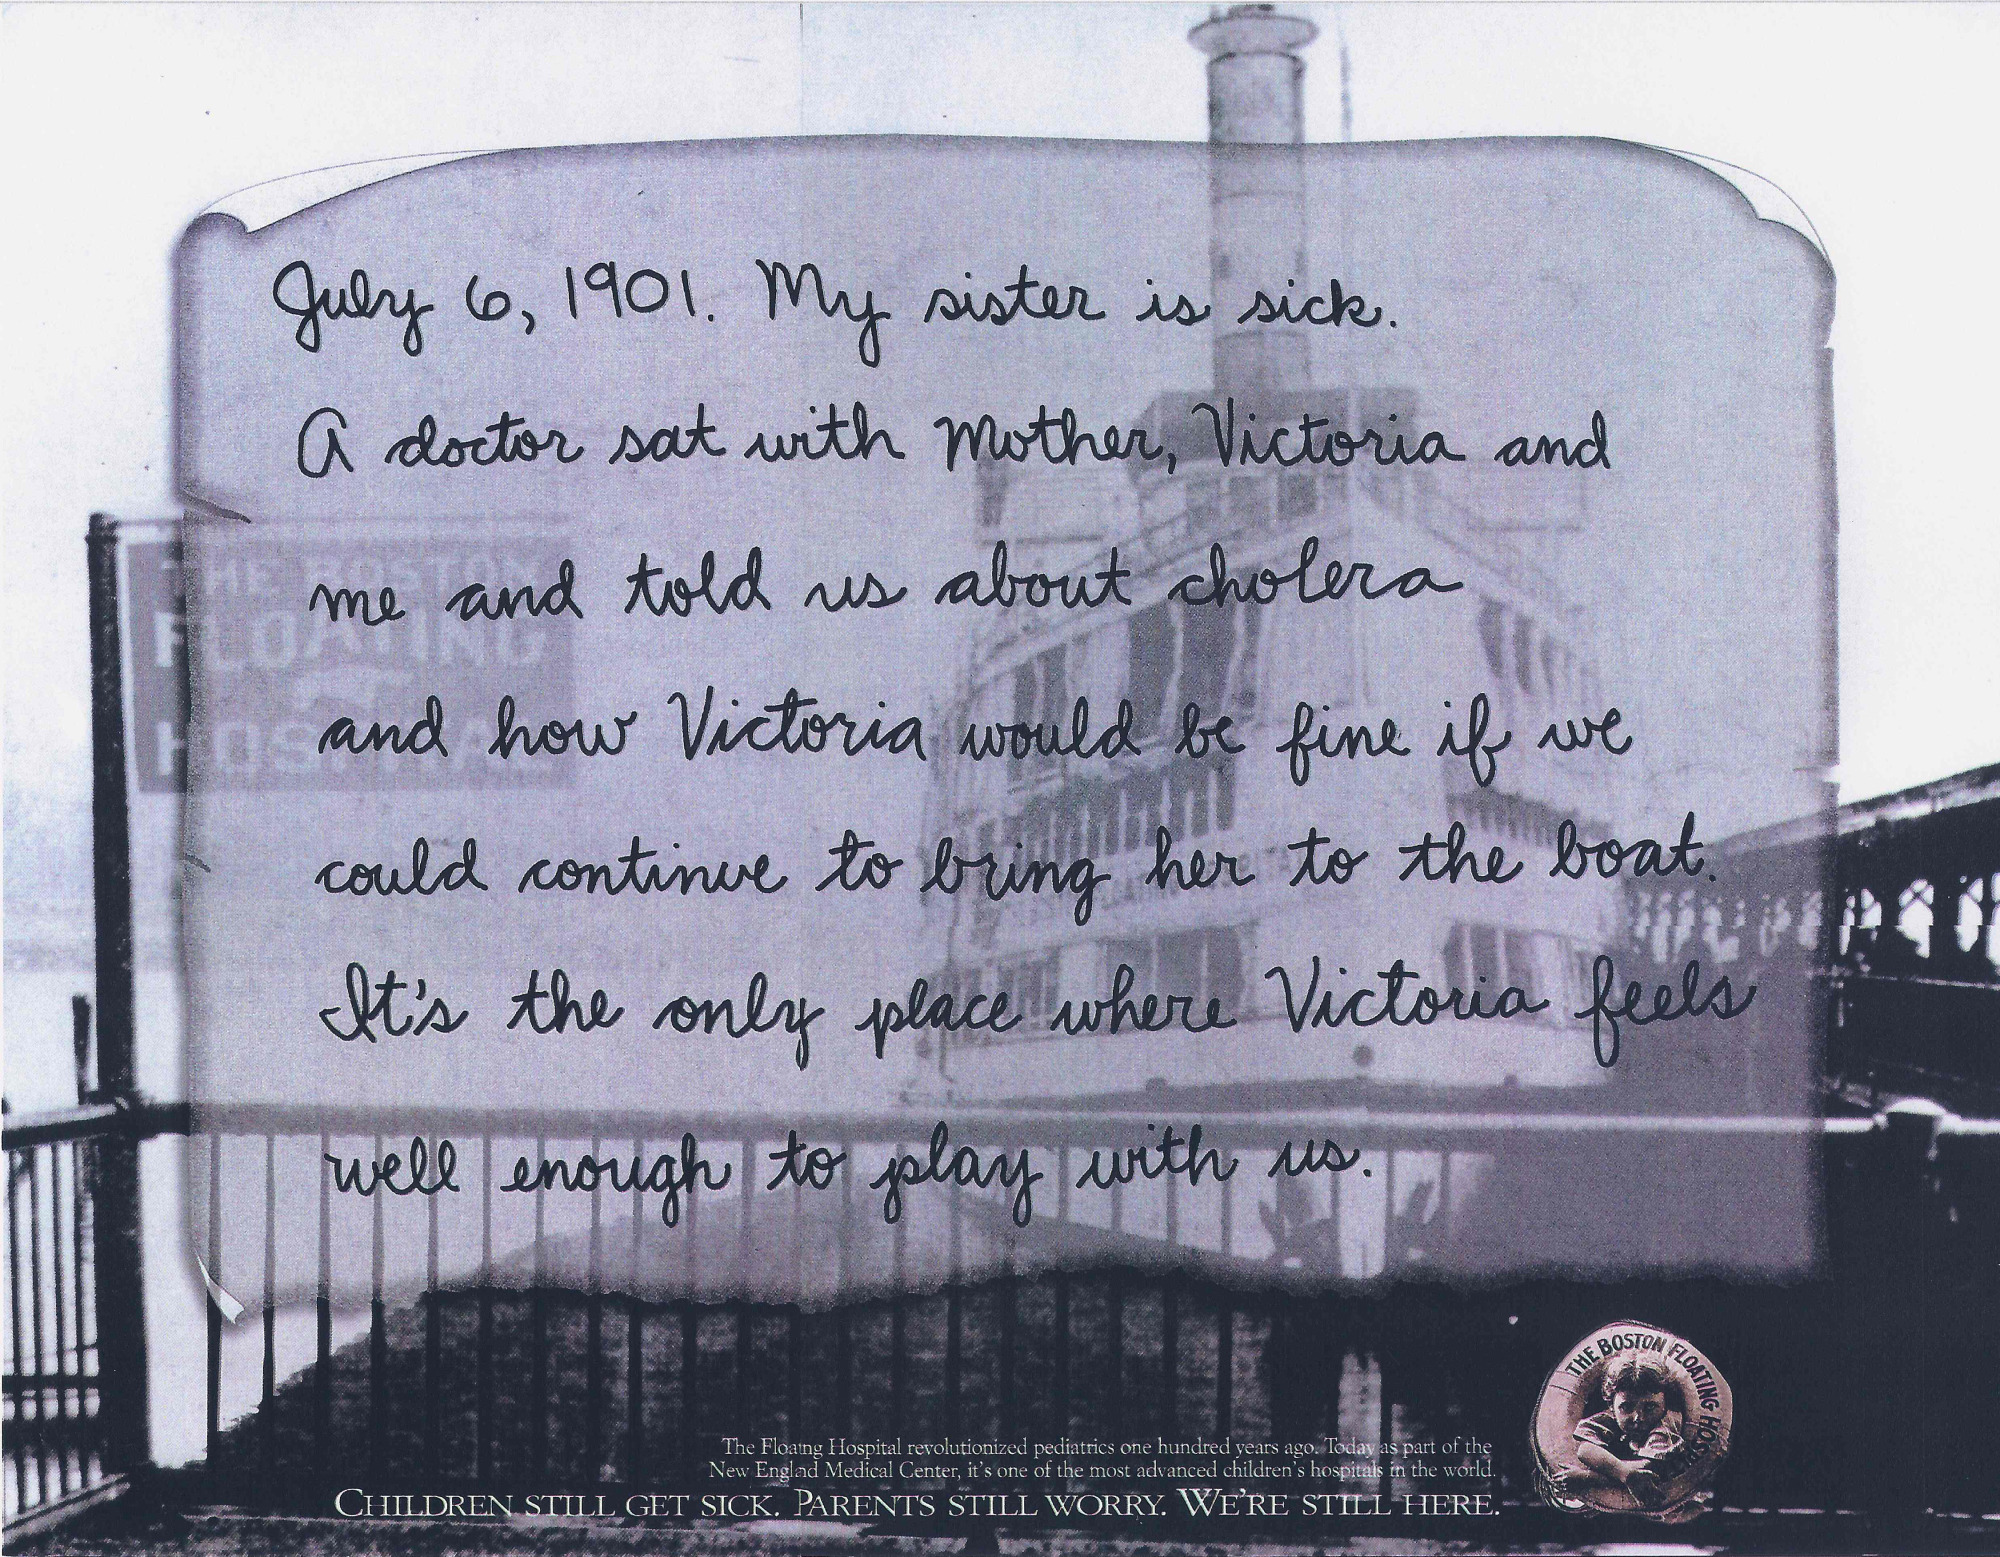 July 6, 1901. My sister is sick.
A doctor sat with Mother, Victoria and
me and told us about cholera
and how Victoria would be fine if we
could continue to bring her to the boat.
It's the only place where Victoria feels
well enough to play with us.
THE BOSTON
FLOATING
HOSPITAL
THE BOSTON FLOATING HOSPITAL
The Floating Hospital revolutionized pediatrics one hundred years ago. Today as part of the
New England Medical Center, it's one of the most advanced children's hospitals in the world.
CHILDREN STILL GET SICK. PARENTS STILL WORRY. WE'RE STILL HERE.